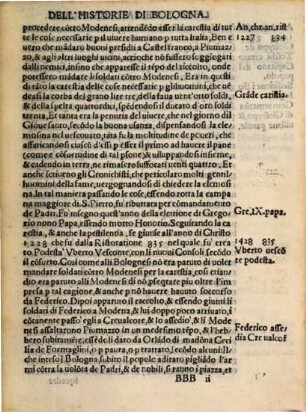 DELL'HISTORIE DI BOLOGNA.
procedere cōtro Modenesi, attendēdo essi la carestia di tut
te le cose necessarie p'l uiuere humano p tutta Italia, Ben e
uero che mādaro buoni presidi a Castel franco, a Piumaz-
zo, & a gli altri luoghi uicini, acciochè nō fussero soggiogati
dalli nemici, in sino che apparesse il tēpo del ricolto, onde
potessero mādare li soldati cōtro Modenesi, Era in questi
dì rāta la carestia delle cose necessarie p gli huomini, che ue
deasi la corba del grano lire tre, della faua uent'otto soldi,
& della spelta quatordici, spēdendosi il ducato d'oro soldi
trenta, Et era tanta la penuria del uiuere, che nel giorno del
Giouesanto, secōdo la buona usanza, dispensandosi la ele-
mosina nel uescouato, uita fu la moltitudine de poueri, che
affaticandosi ciascun d'essi p esser il primo ad hauere il pane
(come è cōsuetudine di tal psone)& uiluppandosi insieme,
& cadendo in terra, ne rimasero suffocati uenti quattro, Et
anche scriuono gli Cronichisti, che pericolaro molti gentil-
huomini della fame, uergognandosi di chiedere la elemosi
na. In tal maniera passando le cose, essendo rotta la campa
na maggiore di. S. Pietro, fu ributtata per cōmandamento
de Padri, Fu' insegno quest'anno della elettione di Grego-
rio nono Papa, essendo morto Honorio. Seguirando la ca
restia, & anche la pestilentia, se afferma l'anno di Christo
1228 che fu dalla Ristoratione 835 nel quale fu' crea to
Podesta Vberto Vesconte, con li nuoui Consoli, secōdo il
cōsueto. Così come alli Bolognesi nō era parutto nel tempo
mandar li nuoui soldati cōtro Modenesi per la carestia, così etian
dio era paruto alli Modenesi nō psequitare piu oltre l'im
presa p tal cagione, & anche p nō hauere hauuto soccorso
da Federico. Dipoi apparito il raccolto, & essendo giunti li
soldati di Federico a Modena, & lui doppo poco arriuato, i
cōtenente passò eglia Creualcore, & lo assediò, & li Mode
nesi assaltarono Piumazzo in un medesimo tēpo, & l'heb
bero subitamente, essendoli dato da Orlādo di madōna Ceci
Cecilia de Formaglini, o p paura, o p trattato, secōdo alcuni: Il-
che inteso I Bolognesi subito il popolo adirato pigliādo l'ar
mi cōtra la uolōtà de Padri, & nobili, n'andaro in piazza, et
BBB ii

An, che, an, rist
1227 834
Grāde caristia.
Gre, IX. papa.
1228 835
Vberto uescō
te podesta.
Federico asse
dia Creualcor